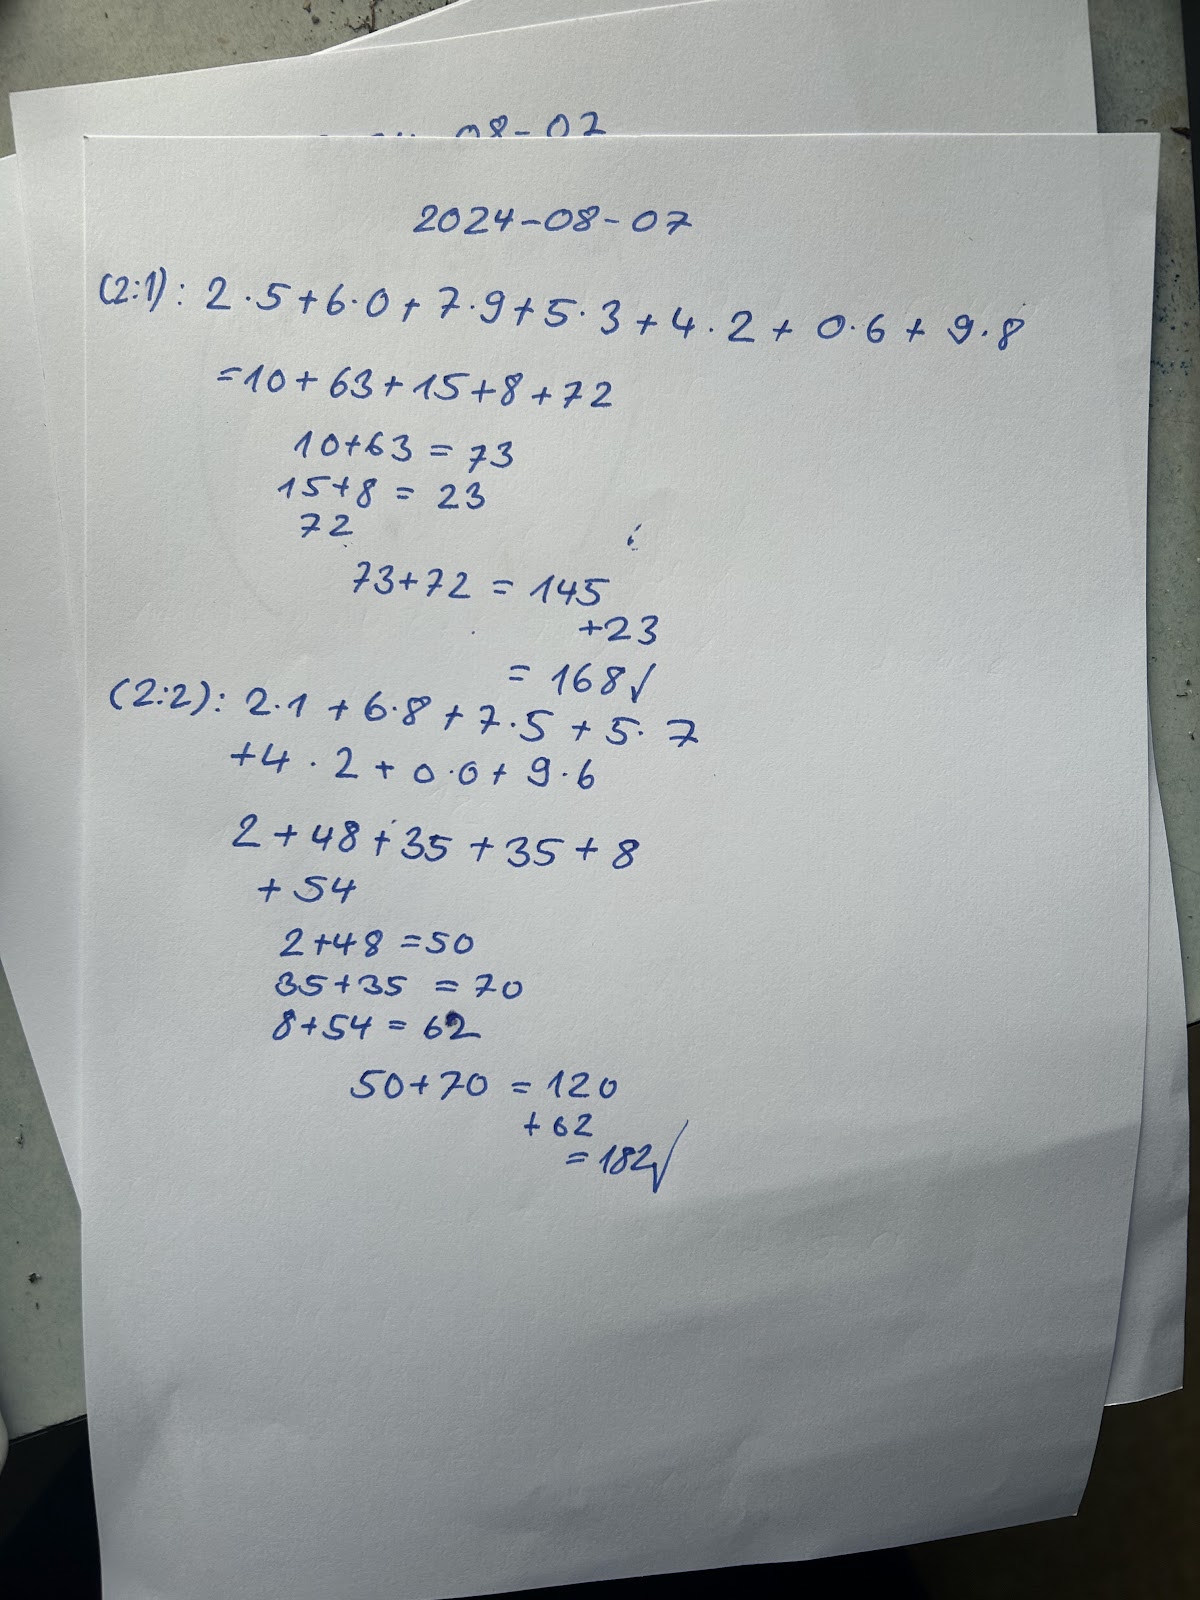 08-07
2024-08-07
(2:1): 2·5+6·0+7·9+5·3+4·2+0·6+9·8
=10+63+15+8+72
10+63=73
15+8=23
72
73+72=145
+23
=168✓
(2:2): 2·1+6·8+7·5+5·7
+4·2+0·0+9·6
2+48+35+35+8
+54
2+48=50
35+35=70
8+54=62
50+70=120
+62
=182✓